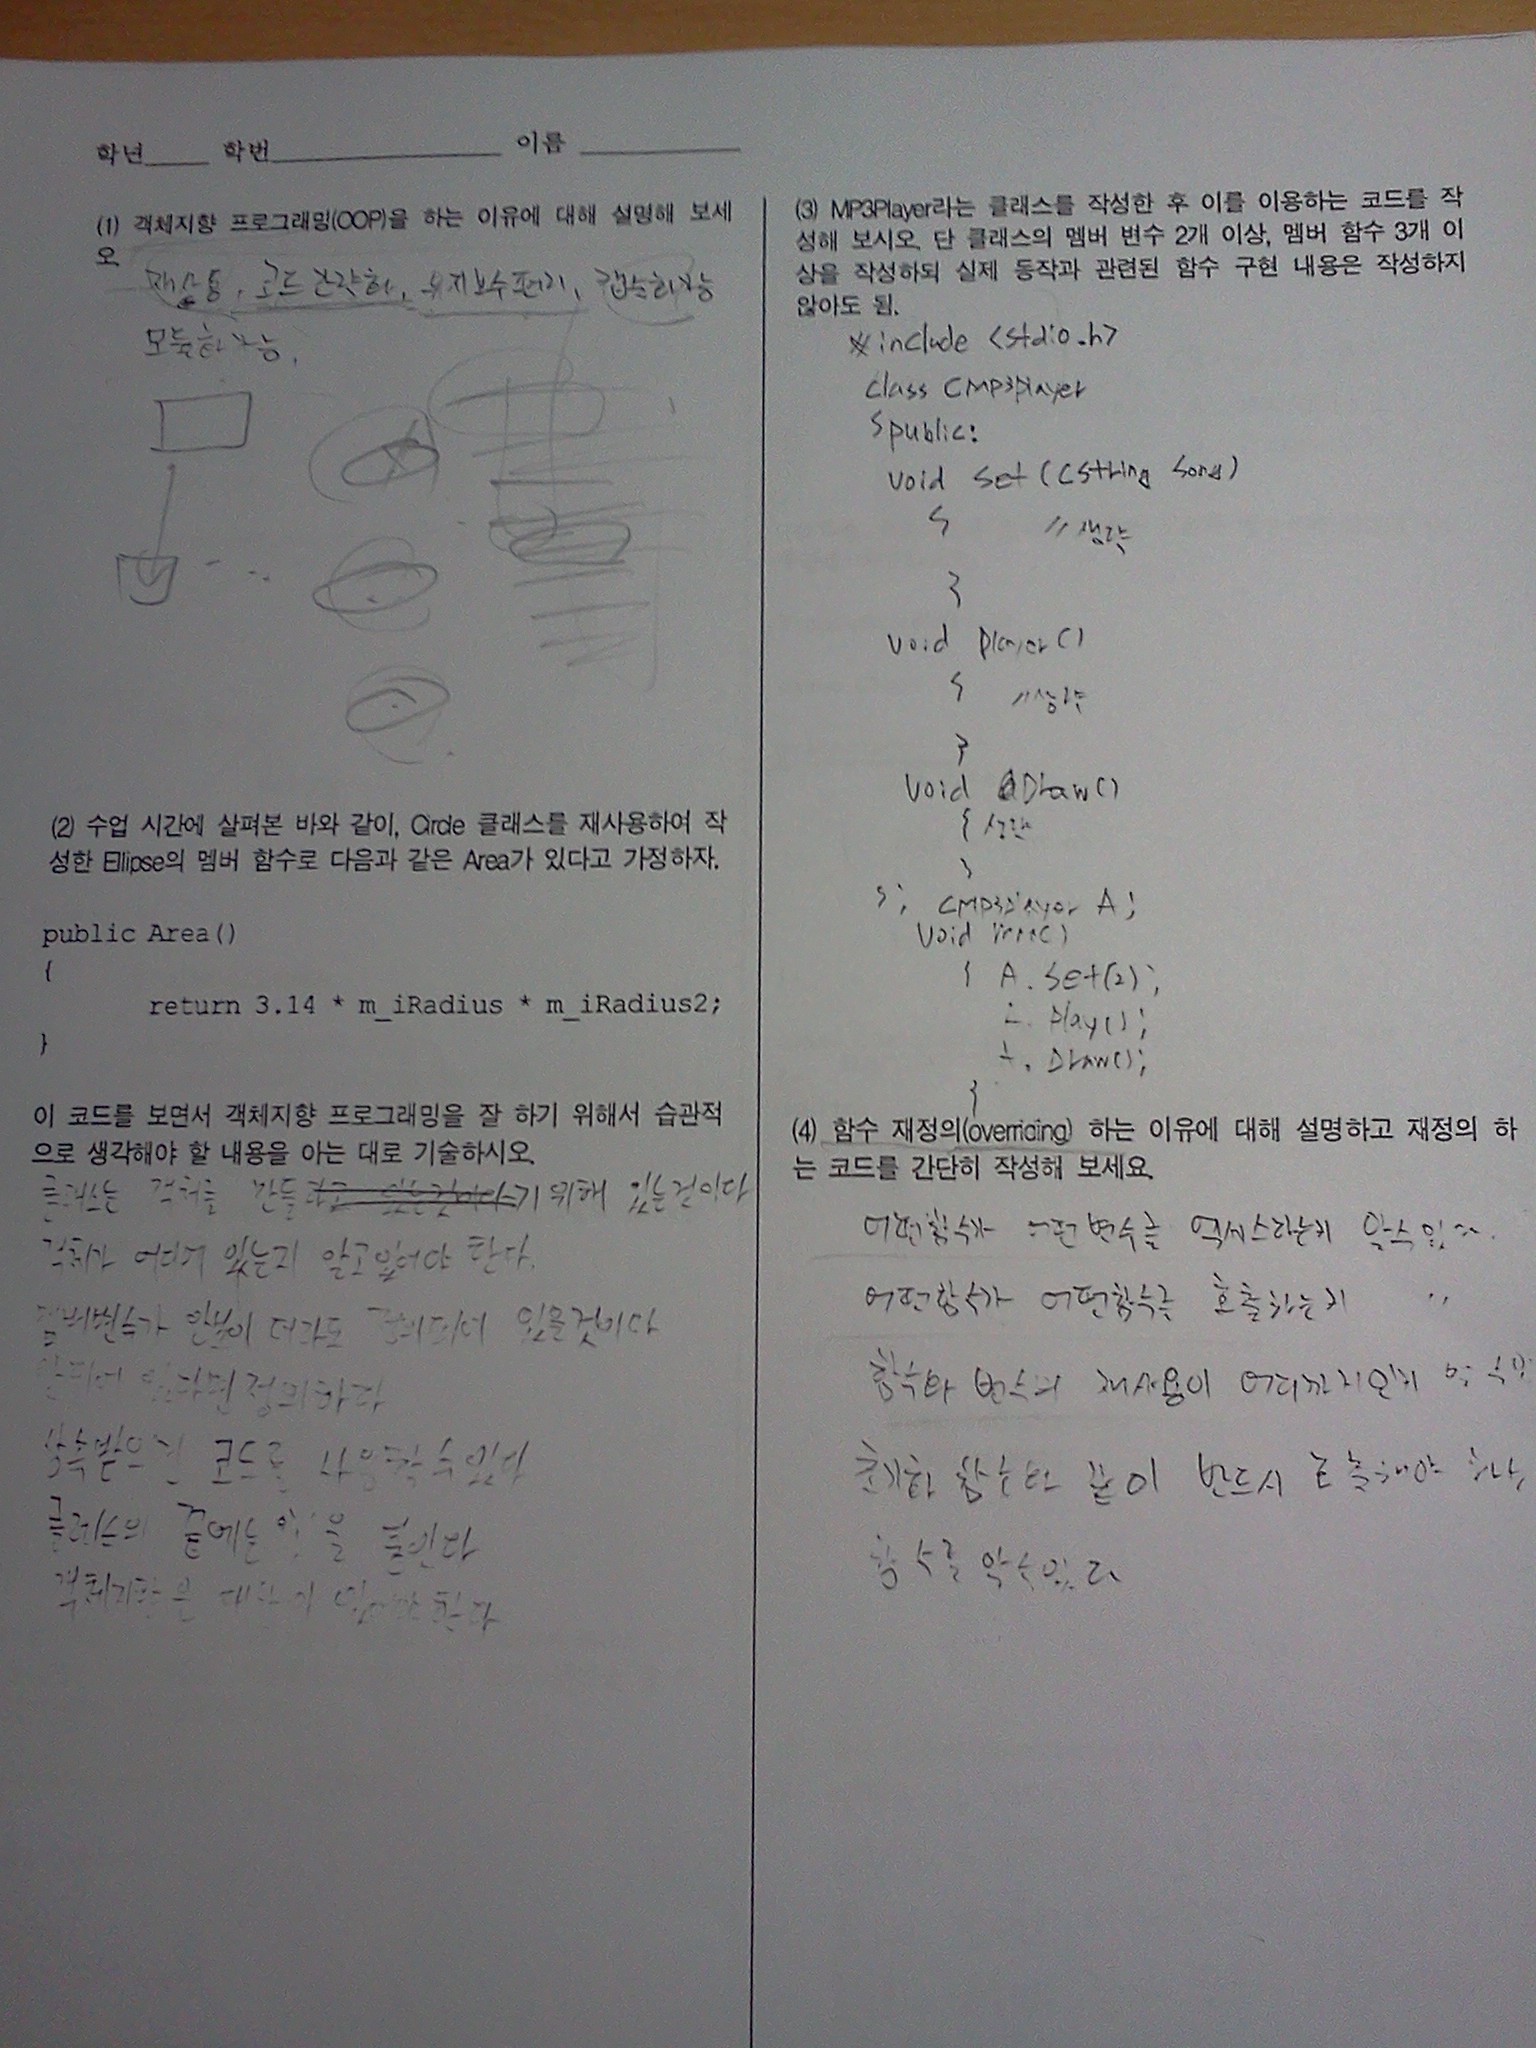 학년____ 학번____________ 이름 ____________
(1) 객체지향 프로그래밍(OOP)을 하는 이유에 대해 설명해 보세
오.
재사용, 코드간략화, 유지보수편리, 캡슐화가능
모듈화가능,
(2) 수업 시간에 살펴본 바와 같이, Circle 클래스를 재사용하여 작
성한 Ellipse의 멤버 함수로 다음과 같은 Area가 있다고 가정하자.
public Area()
{
return 3.14 * m_iRadius * m_iRadius2;
}
이 코드를 보면서 객체지향 프로그래밍을 잘 하기 위해서 습관적
으로 생각해야 할 내용을 아는 대로 기술하시오.
클래스는 객체를 만들기 위해 있는것이다
객체가 어디에 있는지 알고있어야 한다.
멤버변수가 안보이더라도 어딘가에 있을것이다
없다면 정의하다
상속받으면 코드를 사용할수있다
클래스의 끝에는 을 붙인다
객체지향은 한다
(3) MP3Player라는 클래스를 작성한 후 이를 이용하는 코드를 작
성해 보시오. 단 클래스의 멤버 변수 2개 이상, 멤버 함수 3개 이
상을 작성하되 실제 동작과 관련된 함수 구현 내용은 작성하지
않아도 됨.
#include <stdio.h>
class CMP3Player
{ public:
void set(CString song)
{ //생략
}
void player()
{ //생략
}
void Draw()
{ 생략
}
}; CMP3Player A;
void ()
{ A.set(2);
A.Play();
A.Draw();
}
(4) 함수 재정의(overriding) 하는 이유에 대해 설명하고 재정의 하
는 코드를 간단히 작성해 보세요.
어떤함수가 어떤변수를 엑세스하는지 알수있다.
어떤함수가 어떤함수를 호출하는지 〃
함수와 변수의 재사용이 어디까지인지 알수
초기화 함수와 같이 반드시 호출해야 하는
함수를 알수있다